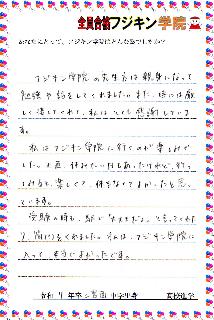 全員合格フジキン学院
あなたにとって、フジキン学院はどんな塾でしたか?
フジキン学院の先生方は親身になって
勉強や話をしてくれました。また、時には厳
しく接してくれて、私はとても感謝していま
す。
私はフジキン学院に行くのが楽しみで
した。正直、休みたい日もあったけれど、行っ
てみると、楽しくて、休まなくてよかったと思っ
ています。
受験の時も、駅で「大丈夫だよ」と言ってくれた
り、聞いてくれました。私は、フジキン学院に
入って、本当によかったです。
令和 年卒 中学出身 高校進学